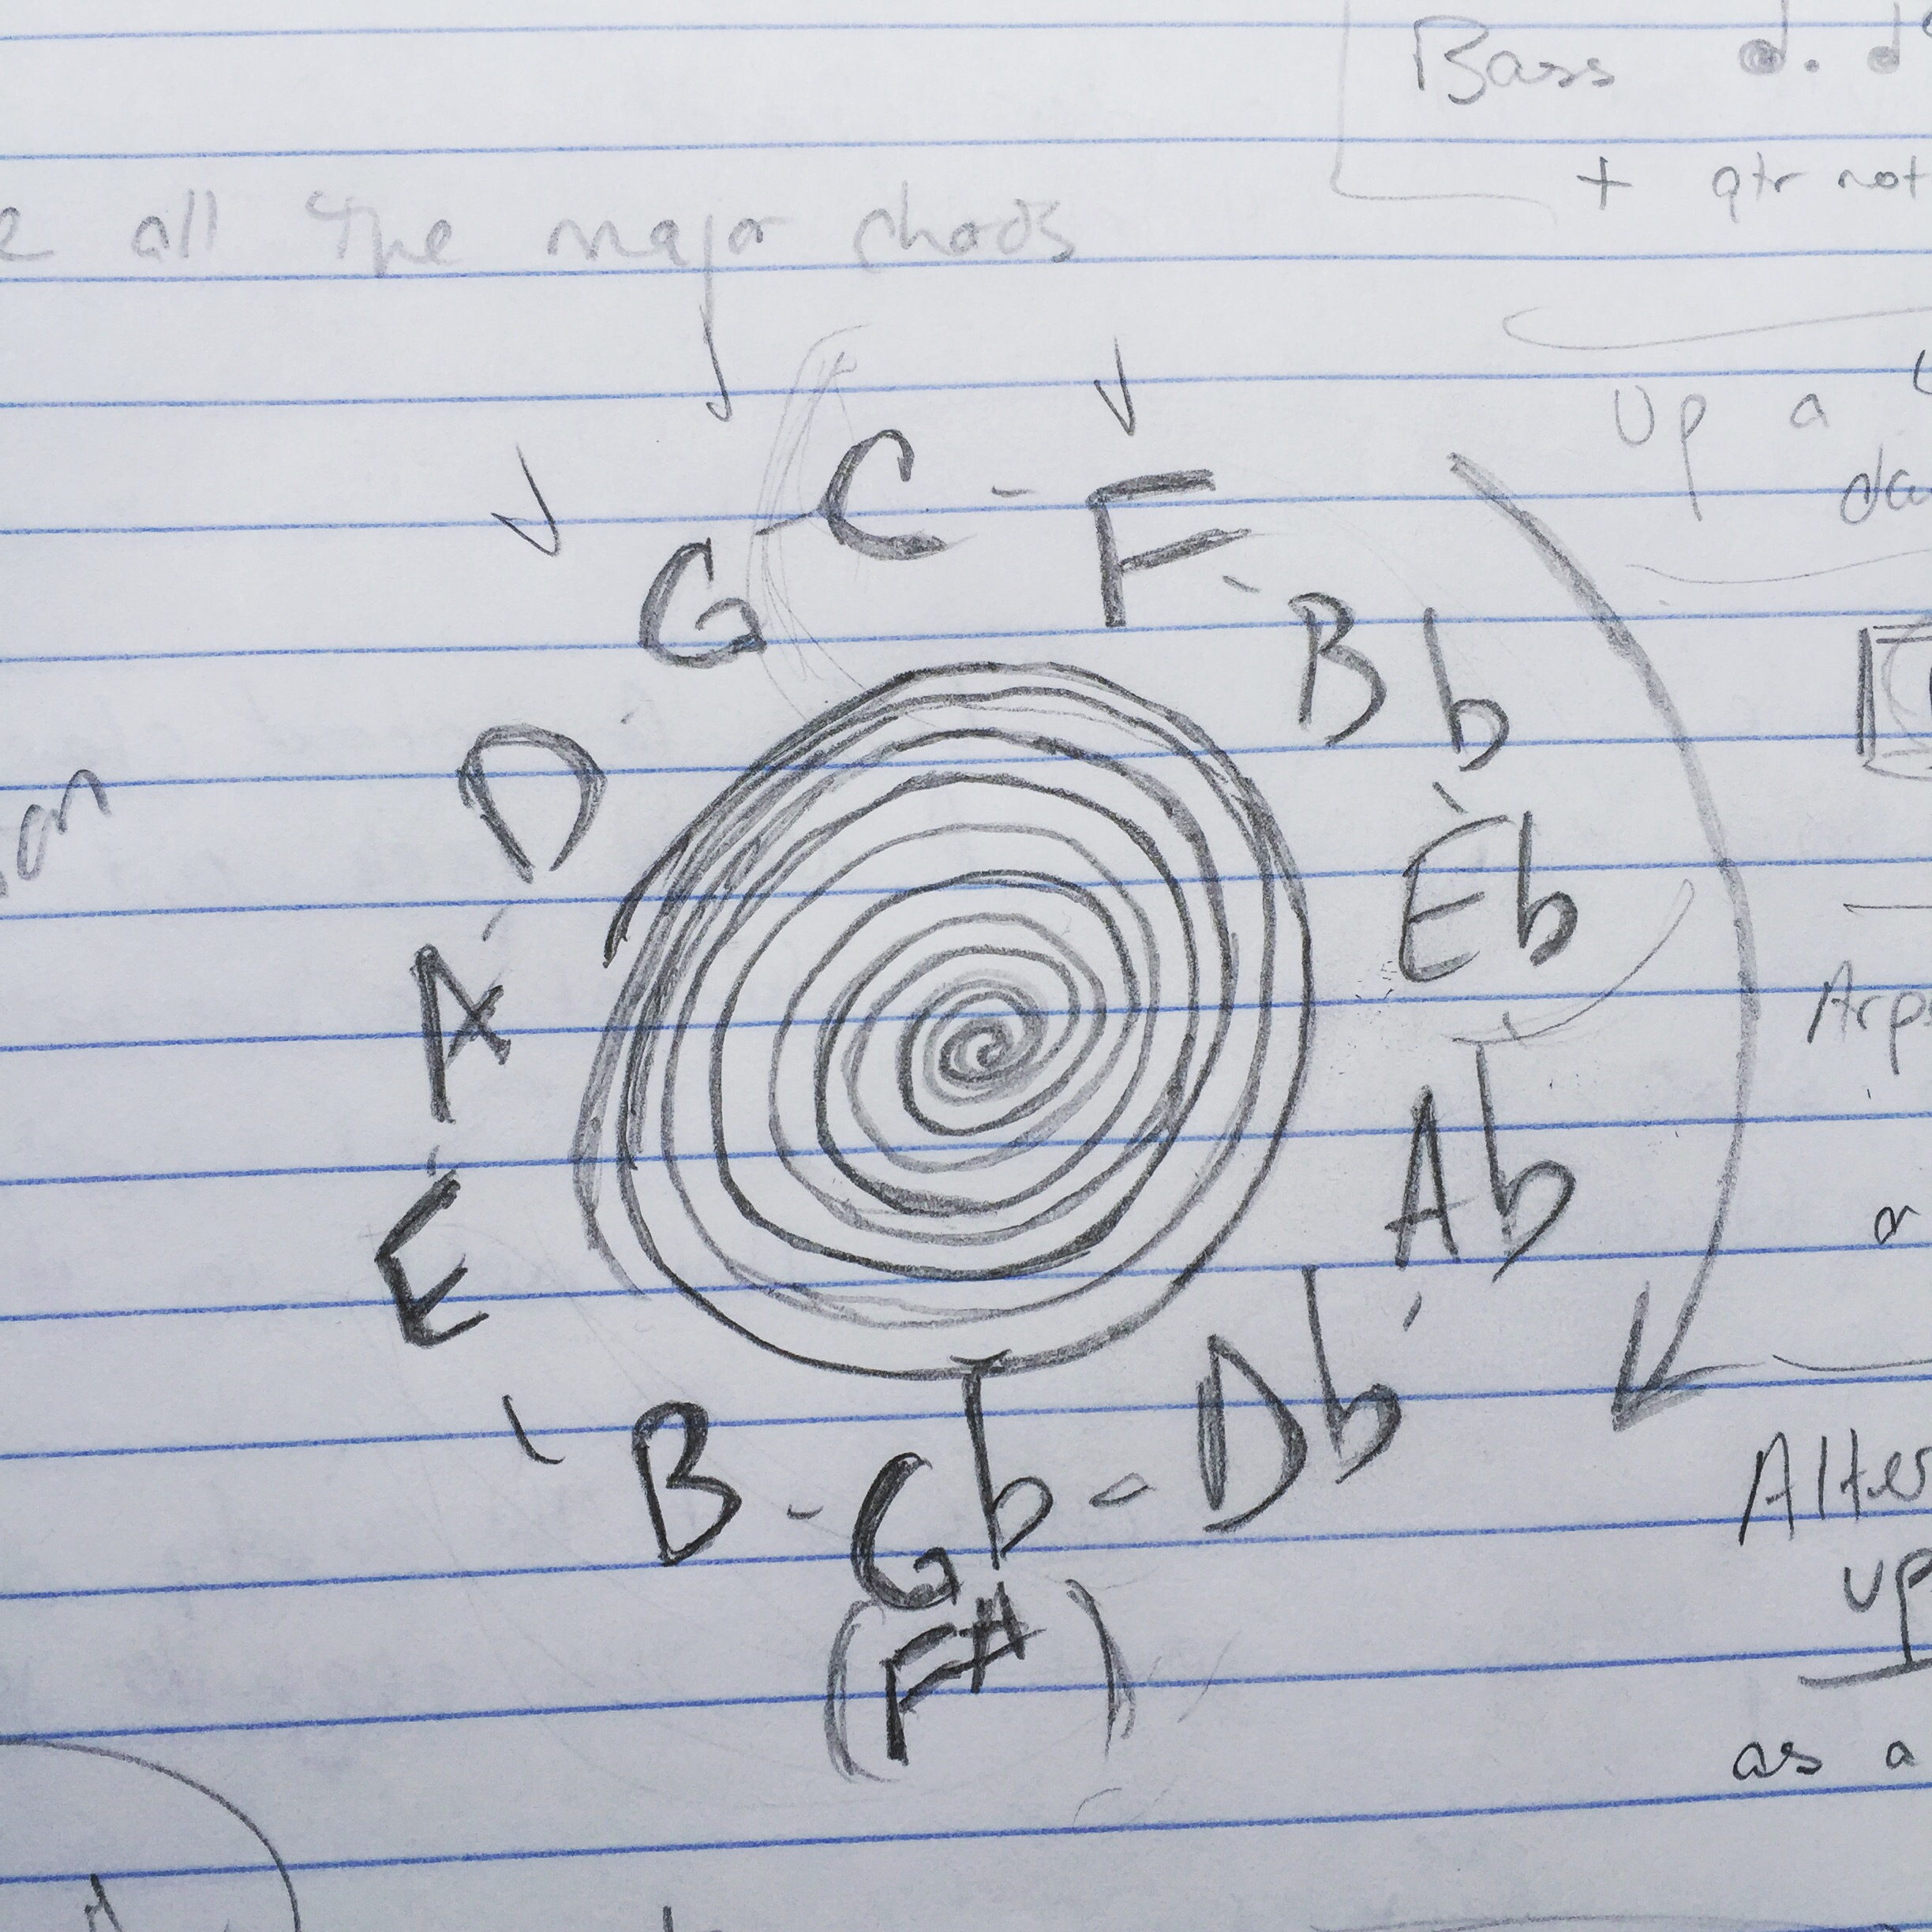 Bass
+ qtr not
all the major chods
Up a
C - F
G
Bb
D
Eb
A
Arps
Ab
E
Db
B - Gb -
(F#)
Alter
up
as a